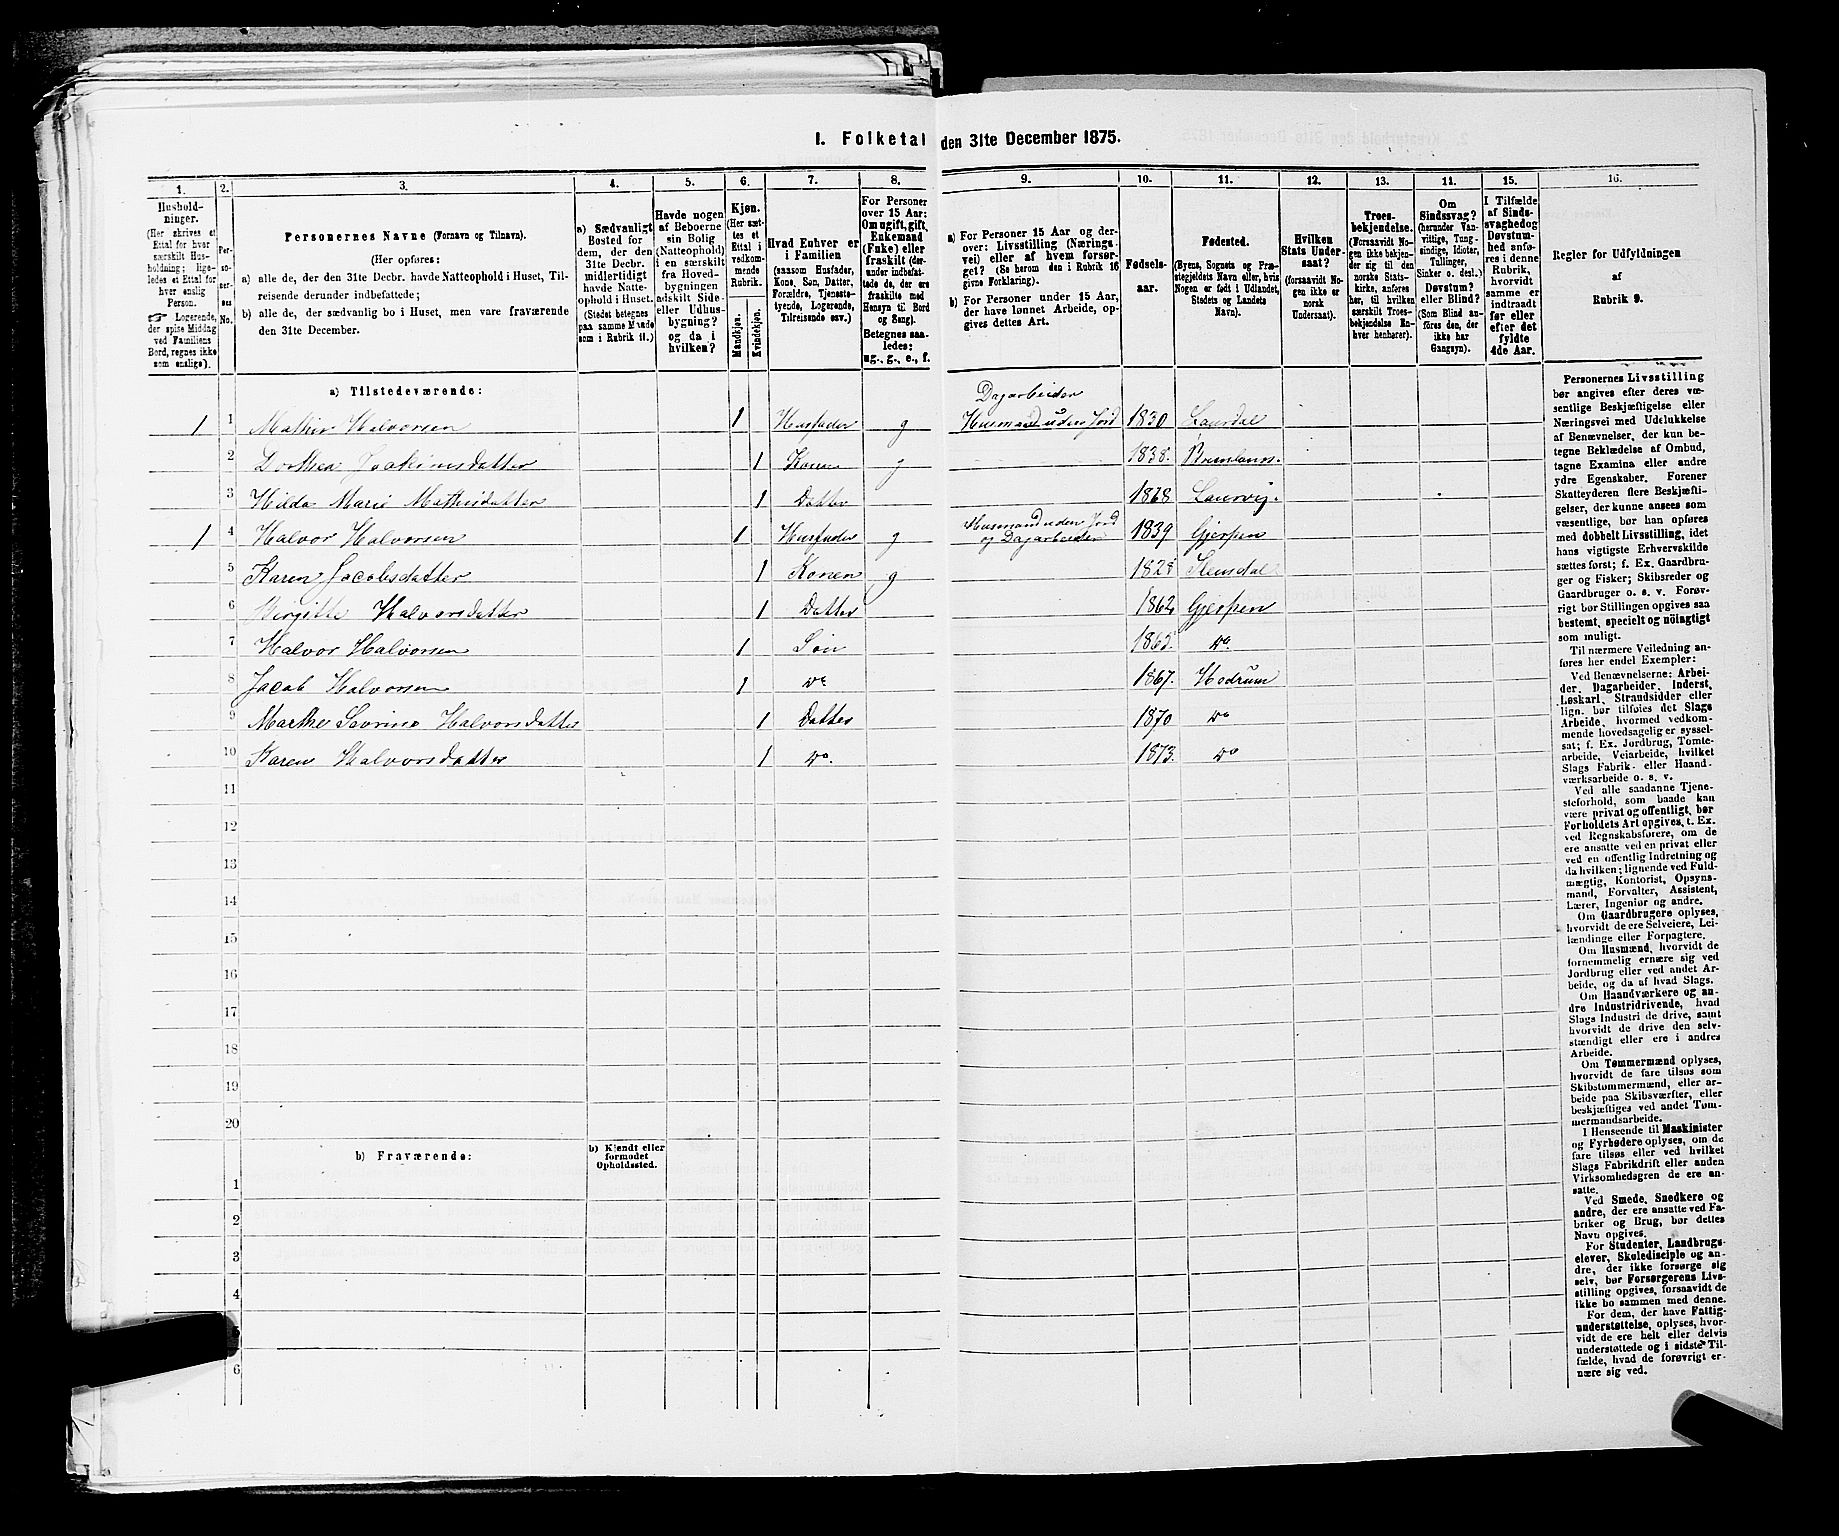 1. Folketal den 31te December 1875.
1. 2. 3. 4. 5. 6. 7. 8. 9. 10. 11. 12. 13. 14. 15. 16.
Hushold-
ninger.
(Her skrives et
Ettal for hver
særskilt Hus-
holdning; lige-
ledes et Ettal for
hver enslig
Person.
☞ Logerende,
der spise Middag
ved Familiens
Bord, regnes ikke
som enslige).
Per-
so-
ner-
nes
No.
Personernes Navne (Fornavn og Tilnavn).
(Her opføres:
a) alle de, der den 31te Decbr. havde Natteophold i Huset, Til-
reisende derunder indbefattede;
b) alle de, der sædvanlig bo i Huset, men vare fraværende
den 31te December.
a) Sædvanligt
Bosted for
dem, der den
31te Decbr.
midlertidigt
havde Natte-
ophold i Huset.
(Stedet betegnes
paa samme Maade
som i Rubrik 11.)
Havde nogen
af Beboerne
sin Bolig
(Natteophold)
i en særskilt
fra Hoved-
bygningen
adskilt Side-
eller Udhus-
bygning?
og da i
hvilken?
Kjøn.
(Her sæt-
tes et
Ettal i
vedkom-
mende
Rubrik.
Mandkjøn.
Kvindekjøn.
Hvad Enhver er
i Familien
(saasom Husfader,
Kone, Søn, Datter,
Forældre, Tjeneste-
tyende, Logerende,
Tilreisende osv.)
For Personer
over 15 Aar:
Om ugift, gift,
Enkemand
(Enke) eller
fraskilt (der-
under indbefat-
tede de, der ere
fraskilte med
Hensyn til Bord
og Seng).
Betegnes saa-
ledes:
ug., g., e., f.
a) For Personer 15 Aar og der-
over: Livsstilling (Nærings-
vei) eller af hvem forsør-
get? (Se herom den i Rubrik 16
givne Forklaring).
b) For Personer under 15 Aar,
der have lønnet Arbeide, op-
gives dettes Art.
Fødsels-
aar.
Fødested.
(Byens, Sognets og Præ-
stegjeldets Navn eller, hvis
Nogen er født i Udlandet,
Stedets og Landets
Navn).
Hvilken
Stats Under-
saat?
(forsaavidt No-
gen ikke er
norsk
Undersaat).
Troes-
bekjendelse.
(Forsaavidt No-
gen ikke bekjen-
der sig til den
norske Stats-
kirke, anføres
her, til hvilken
særskilt Troes-
bekjendelse En-
hver henhører).
Om
Sindssvag?
(herunder Van-
vittige, Tung-
sindige, Idioter,
Tullinger,
Sinker o. desl.)
Døvstum?
eller Blind?
(Som Blind an-
føres den, der
ikke har
Gangsyn).
I Tilfælde
af Sinds-
svaghed og
Døvstum-
hed anfø-
res i denne
Rubrik,
hvorvidt
samme er
indtraadt
før eller
efter det
fyldte
4de Aar.
Regler for Udfyldningen
af
Rubrik 9.
a) Tilstedeværende:
Dagarbeider
1 1 Mathis Halvorsen 1 Husfader g Husmand uden Jord 1830 Laurdal
2 Dorthea Joakimsdatter 1 Konen g 1838.
3 Hilda Marie Mathisdatter 1 Datter 1868 Laurvig.
1 4 Halvor Halvorsen 1 Husfader g Husmand uden Jord og Dagarbeider 1839 Gjerpen
5 Karen Jacobsdatter 1 Konen g 1828
6 Birgitte Halvorsdatter 1 Datter 1862 Gjerpen
7 Halvor Halvorsen 1 Søn 1865 do.
8 Jacob Halvorsen 1 do 1867. Hedrum
9 Marthe Sevrine Halvorsdatter 1 Datter 1870 do
10 Karen Halvorsdatter 1 do. 1873. do
11
12
13
14
15
16
17
18
19
20
b) Fraværende:
b) Kjendt eller
formodet
Opholdssted.
1
2
3
4
6
Personernes Livsstilling
bør angives efter deres væ-
sentlige Beskjæftigelse eller
Næringsvei med Udelukkelse
af Benævnelser, der kun be-
tegne Beklædelse af Ombud,
tagne Examina eller andre
ydre Egenskaber. Forener
Skatteyderen flere Beskjæfti-
gelser, der kunne ansees som
væsentlige, bør han opføres
med dobbelt Livsstilling, idet
hans vigtigste Erhvervskilde
sættes først; f. Ex. Gaardbru-
ger og Fisker; Skibsreder og
Gaardbruger o. s. v. Forøv-
rigt bør Stillingen opgives saa
bestemt, specielt og nöiagtigt
som muligt.
Til nærmere Veiledning an-
føres her endel Exempler:
Ved Benævnelserne: Arbei-
der, Dagarbeider, Inderst,
Løskarl, Strandsidder eller
lign. bør tilføies det Slags
Arbeide, hvormed vedkom-
mende hovedsagelig er syssel-
sat; f. Ex. Jordbrug, Tomte-
arbeide, Veiarbeide, hvilket
Slags Fabrik- eller Haand-
værksarbeide o. s. v.
Ved alle saadanne Tjene-
steforhold, som baade kan
være privat og offentligt, bør
Forholdets Art opgives, t. Ex.
ved Regnskabsførere, om de
ere ansatte ved en privat eller
ved en offentlig Indretning og
da hvilken; lignende ved Fuld-
mægtig, Kontorist, Opsyns-
mand, Forvalter, Assistent,
Lærer, Ingeniør og andre.
Om Gaardbrugere oplyses,
hvorvidt de ere Selveiere, Lei-
lændinge eller Forpagtere.
Om Husmænd, hvorvidt de
fornemmelig ernære sig ved
Jordbrug eller ved andet Ar-
beide, og da af hvad Slags.
Om Haandværkere og an-
dre Industridrivende, hvad
Slags Industri de drive, samt
hvorvidt de drive den selv-
stændigt eller ere i andres
Arbeide.
Om Tømmermænd oplyses,
hvorvidt de fare tilsøs som
Skibstømmermænd, eller ar-
beide paa Skibsværfter, eller
beskjæftiges ved andet Tøm-
mermandsarbeide.
I Henseende til Maskinister
og Fyrbødere oplyses, om de
fare tilsøs eller ved hvilket
Slags Fabrikdrift eller anden
Virksomhedsgren de ere an-
satte.
Ved Smede, Snedkere og
andre, der ere ansatte ved Fa-
briker og Brug, bør dettes
Navn opgives.
For Studenter, Landbrugs-
elever, Skoledisciple og an-
dre, der ikke forsørge sig
selv, bør Forsørgerens Livs-
stilling opgives, forsaavidt de
ikke bo sammen med denne.
For dem, der have Fattig-
understøttelse, oplyses, hvor-
vidt de ere helt eller delvis
understøttede og i sidste Til-
fælde, hvad de forøvrigt er-
nære sig ved.